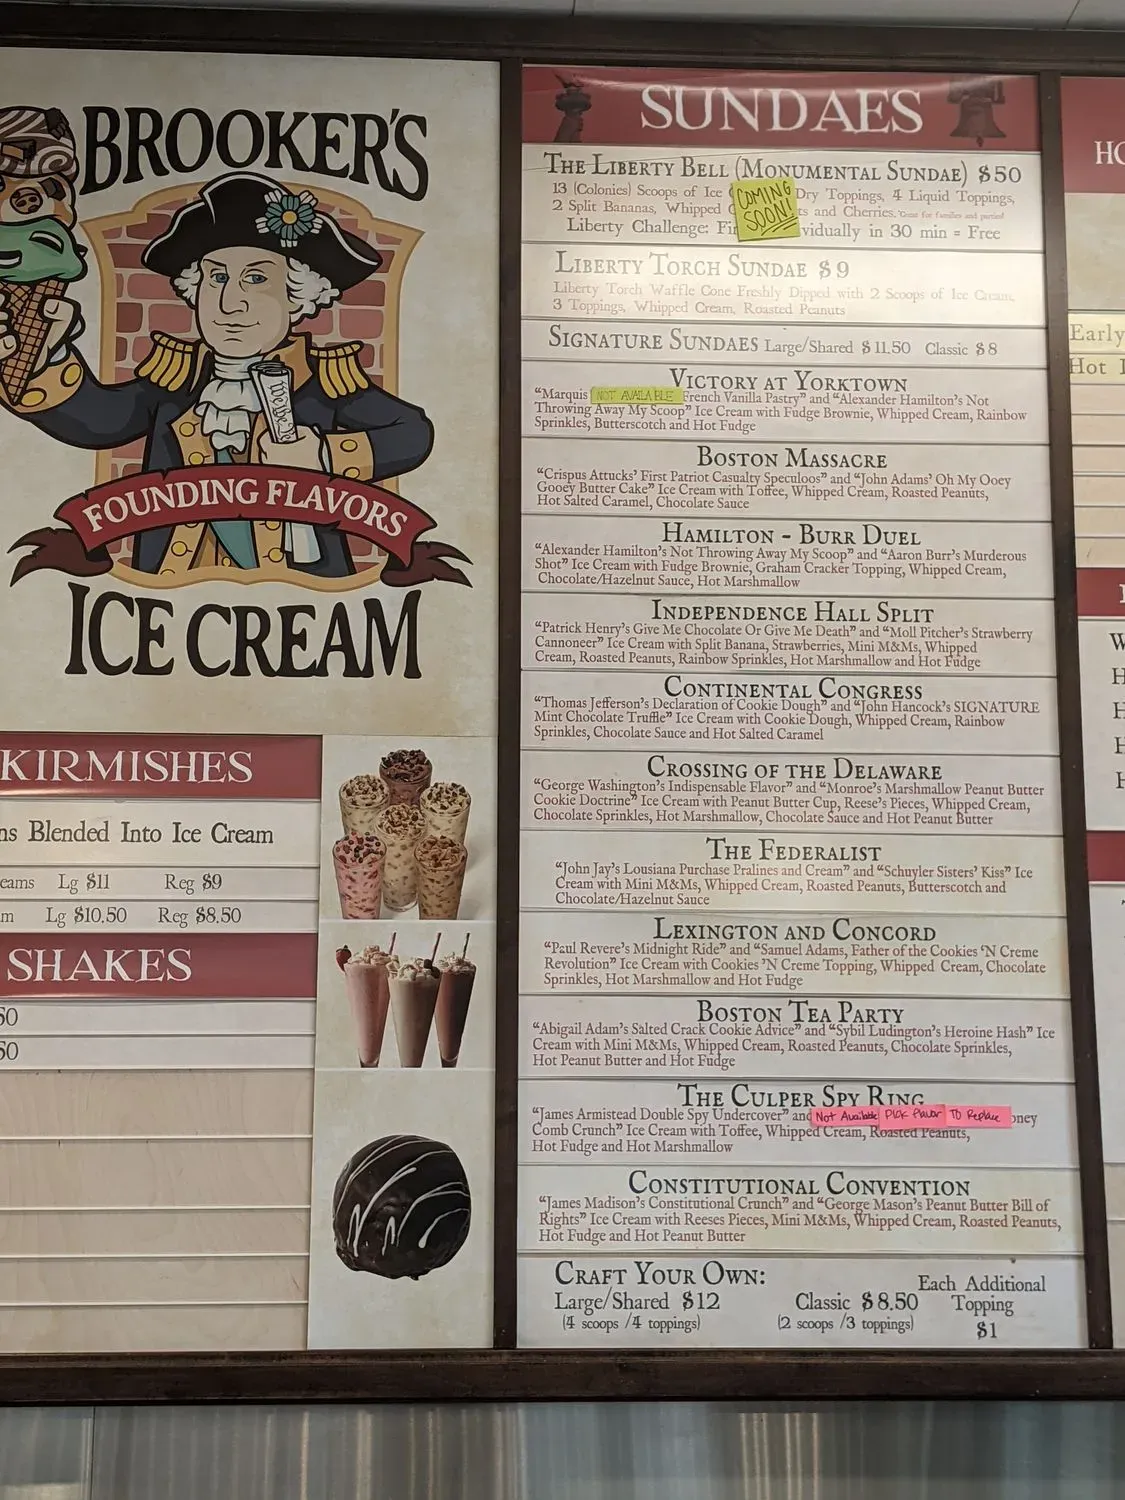 BROOKER'S
We the
FOUNDING FLAVORS
ICE CREAM
KIRMISHES
ns Blended Into Ice Cream
eams Lg $11 Reg $9
m Lg $10.50 Reg $8.50
SHAKES
50
50
SUNDAES
THE LIBERTY BELL (MONUMENTAL SUNDAE) $50
13 (Colonies) Scoops of Ice Dry Toppings, 4 Liquid Toppings,
2 Split Bananas, Whipped C ts and Cherries. *Great for families and parties!
Liberty Challenge: Fin vidually in 30 min = Free
COMING
SOON!
LIBERTY TORCH SUNDAE $9
Liberty Torch Waffle Cone Freshly Dipped with 2 Scoops of Ice Cream,
3 Toppings, Whipped Cream, Roasted Peanuts
SIGNATURE SUNDAES Large/Shared $11.50 Classic $8
VICTORY AT YORKTOWN
"Marquis NOT AVAILABLE French Vanilla Pastry" and "Alexander Hamilton's Not
Throwing Away My Scoop" Ice Cream with Fudge Brownie, Whipped Cream, Rainbow
Sprinkles, Butterscotch and Hot Fudge
BOSTON MASSACRE
"Crispus Attucks' First Patriot Casualty Speculoos" and "John Adams' Oh My Ooey
Gooey Butter Cake" Ice Cream with Toffee, Whipped Cream, Roasted Peanuts,
Hot Salted Caramel, Chocolate Sauce
HAMILTON - BURR DUEL
"Alexander Hamilton's Not Throwing Away My Scoop" and "Aaron Burr's Murderous
Shot" Ice Cream with Fudge Brownie, Graham Cracker Topping, Whipped Cream,
Chocolate/Hazelnut Sauce, Hot Marshmallow
INDEPENDENCE HALL SPLIT
"Patrick Henry's Give Me Chocolate Or Give Me Death" and "Moll Pitcher's Strawberry
Cannoneer" Ice Cream with Split Banana, Strawberries, Mini M&Ms, Whipped
Cream, Roasted Peanuts, Rainbow Sprinkles, Hot Marshmallow and Hot Fudge
CONTINENTAL CONGRESS
"Thomas Jefferson's Declaration of Cookie Dough" and "John Hancock's SIGNATURE
Mint Chocolate Truffle" Ice Cream with Cookie Dough, Whipped Cream, Rainbow
Sprinkles, Chocolate Sauce and Hot Salted Caramel
CROSSING OF THE DELAWARE
"George Washington's Indispensable Flavor" and "Monroe's Marshmallow Peanut Butter
Cookie Doctrine" Ice Cream with Peanut Butter Cup, Reese's Pieces, Whipped Cream,
Chocolate Sprinkles, Hot Marshmallow, Chocolate Sauce and Hot Peanut Butter
THE FEDERALIST
"John Jay's Lousiana Purchase Pralines and Cream" and "Schuyler Sisters' Kiss" Ice
Cream with Mini M&Ms, Whipped Cream, Roasted Peanuts, Butterscotch and
Chocolate/Hazelnut Sauce
LEXINGTON AND CONCORD
"Paul Revere's Midnight Ride" and "Samuel Adams, Father of the Cookies 'N Creme
Revolution" Ice Cream with Cookies 'N Creme Topping, Whipped Cream, Chocolate
Sprinkles, Hot Marshmallow and Hot Fudge
BOSTON TEA PARTY
"Abigail Adam's Salted Crack Cookie Advice" and "Sybil Ludington's Heroine Hash" Ice
Cream with Mini M&Ms, Whipped Cream, Roasted Peanuts, Chocolate Sprinkles,
Hot Peanut Butter and Hot Fudge
THE CULPER SPY RING
"James Armistead Double Spy Undercover" and Not Available Pick Flavor To Replace oney
Comb Crunch" Ice Cream with Toffee, Whipped Cream, Roasted Peanuts,
Hot Fudge and Hot Marshmallow
CONSTITUTIONAL CONVENTION
"James Madison's Constitutional Crunch" and "George Mason's Peanut Butter Bill of
Rights" Ice Cream with Reeses Pieces, Mini M&Ms, Whipped Cream, Roasted Peanuts,
Hot Fudge and Hot Peanut Butter
CRAFT YOUR OWN:
Large/Shared $12
(4 scoops /4 toppings)
Classic $8.50
(2 scoops /3 toppings)
Each Additional
Topping
$1
HO
Early
Hot
W
H
H
H
H